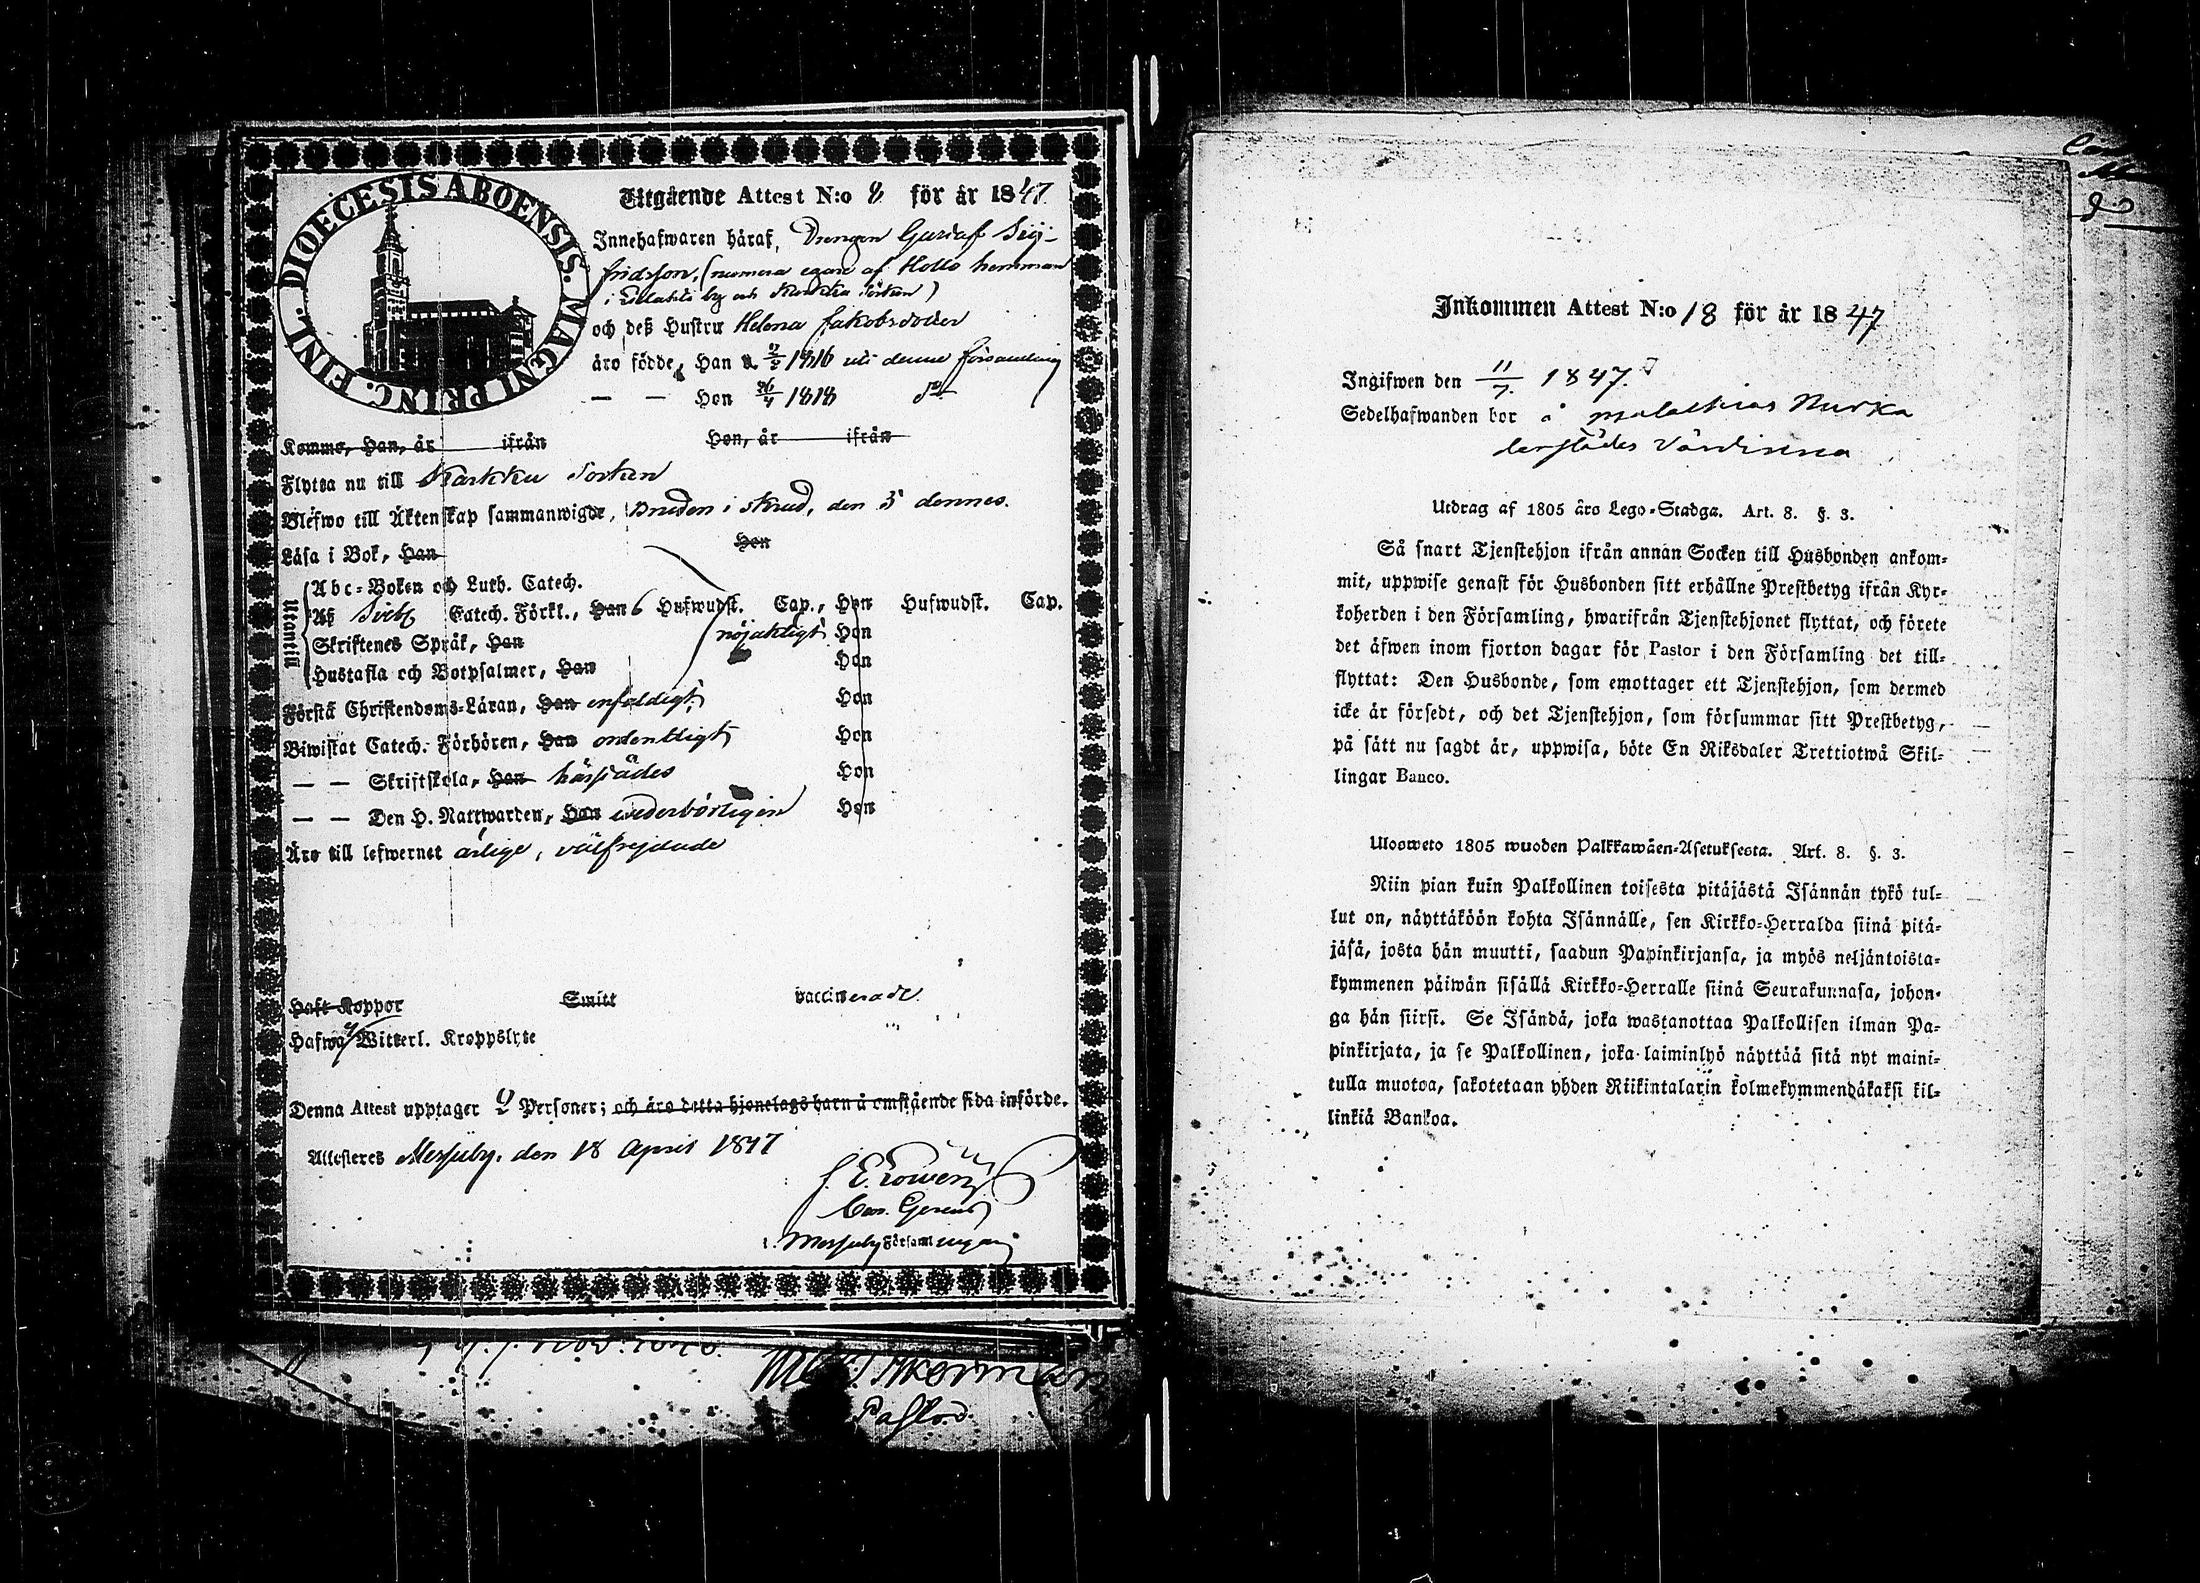 DIOECESIS ABOENSIS. MAGNI PRINC. FINL.
Utgående Attest N:o 8 för år 1847.
Innehafwaren häraf, Drengen Gustaf Sig-
fridsson, (numera egare af Hollo hemman
i by och Karkku Socken)
och deß Hustru Helena Jakobsdotter
äro födde, Han d. 1816 uti denna församling
— — Hon 26/4 1818 do
Komne, Han, år ifrån Hon, år ifrån
Flytta nu till Karkku Socken
Blefwo till Äktenskap sammanwigde, Bruden i skrud, den 5 dennes.
Läsa i Bok, Han Hon
Utantill
Abc-Boken och Luth. Catech.
Af Sveb. Catech. Förkl., Han 6 Hufwudst. Cap., Hon Hufwudst. Cap.
Skriftenes Språk, Han nöjaktigt Hon
Hustafla och Botpsalmer, Han Hon
Förstå Christendoms-Läran, Han enfaldigt, Hon
Biwistat Catech. Förhören, Han ordentligt, Hon
— — Skriftskola, Han härstädes Hon
— — Den H. Nattwarden, Han wederbörligen Hon
Äro till lefwernet ärlige, välfrejdade
Haft Koppor Smitt vaccinerade.
Hafwa ej Witterl. Kroppslyte
Denna Attest upptager 2 Personer; och äro detta hjonelags barn å omstående sida införde.
Attesteres Merjeby, den 18 April 1847
Församlingen
Pastor.
Inkommen Attest N:o 18 för år 1847
Ingifwen den 11/7 1847.
Sedelhafwanden bor å
derstädes Värdinna
Utdrag af 1805 års Lego-Stadga. Art. 8. §. 3.
Så snart Tjenstehjon ifrån annan Socken till Husbonden ankom-
mit, uppwise genast för Husbonden sitt erhållne Prestbetyg ifrån Kyr-
koherden i den Församling, hwarifrån Tjenstehjonet flyttat, och förete
det äfwen inom fjorton dagar för Pastor i den Församling det till-
flyttat: Den Husbonde, som emottager ett Tjenstehjon, som dermed
icke är försedt, och det Tjenstehjon, som försummar sitt Prestbetyg,
på sätt nu sagdt är, uppwisa, böte En Riksdaler Trettiotwå Skil-
lingar Banco.
Ulosweto 1805 wuoden Palkkawäen-Asetuksesta. Art. 8. §. 3.
Niin pian kuin Palkollinen toisesta pitäjästä Isännän tykö tul-
lut on, näyttäköön kohta Isännälle, sen Kirkko-Herralda siinä pitä-
jäsä, josta hän muutti, saadun Papinkirjansa, ja myös neljäntoista-
kymmenen päiwän sisällä Kirkko-Herralle siinä Seurakunnasa, johon-
ga hän siirsi. Se Isändä, joka wastanottaa Palkollisen ilman Pa-
pinkirjata, ja se Palkollinen, joka laiminlyö näyttää sitä nyt maini-
tulla muotoa, sakotetaan yhden Riikintalarin kolmekymmendäkaksi kil-
linkiä Bankoa.